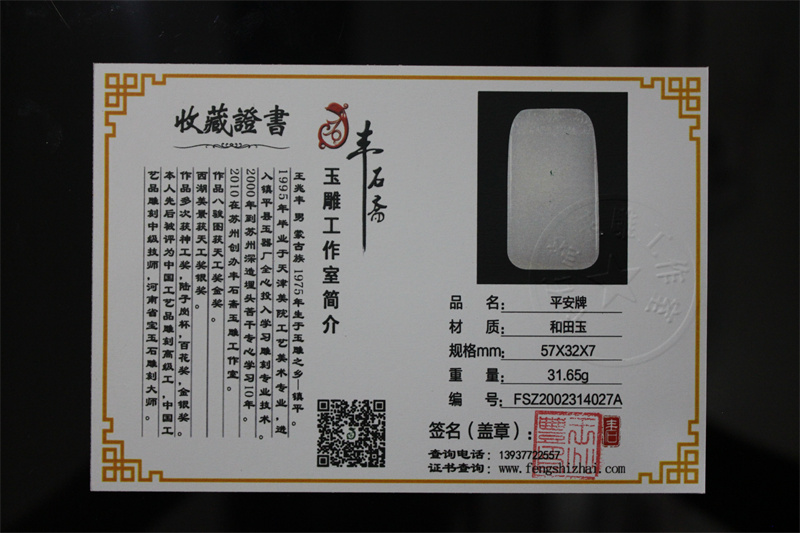 收藏證書
丰石斋
玉雕工作室简介
王兆丰 男 蒙古族 1975年生于玉雕之乡—镇平。
1995年毕业于天津美院工艺美术专业，进
入镇平县玉器厂全心投入学习雕刻专业技术。
2000年到苏州深造埋头苦干专心学习10年。
2010在苏州创办丰石斋玉雕工作室。
作品八骏图获天工奖金奖。
西湖美景获天工奖银奖。
作品多次获神工奖，陆子岗杯，百花奖，金银奖。
本人先后被评为中国工艺品雕刻高级工，中国工
艺品雕刻中级技师，河南省宝玉石雕刻大师。
品 名： 平安牌
材 质： 和田玉
规格mm： 57X32X7
重 量： 31.65g
编 号： FSZ2002314027A
签名（盖章）：
查询电话： 13937722557
证书查询： www.fengshizhai.com